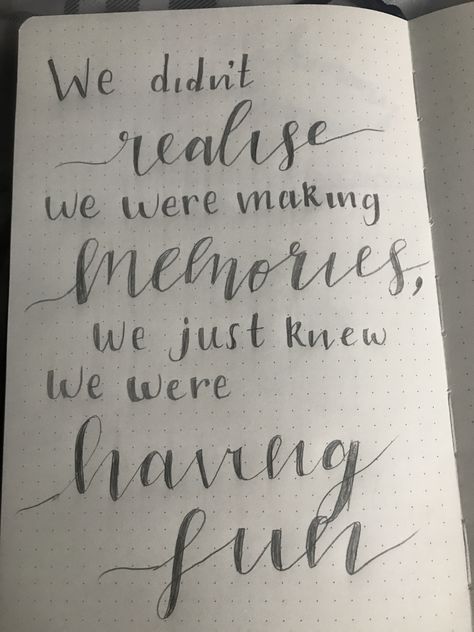 We didn't
realise
we were making
memories,
We just knew
We were
having
fun